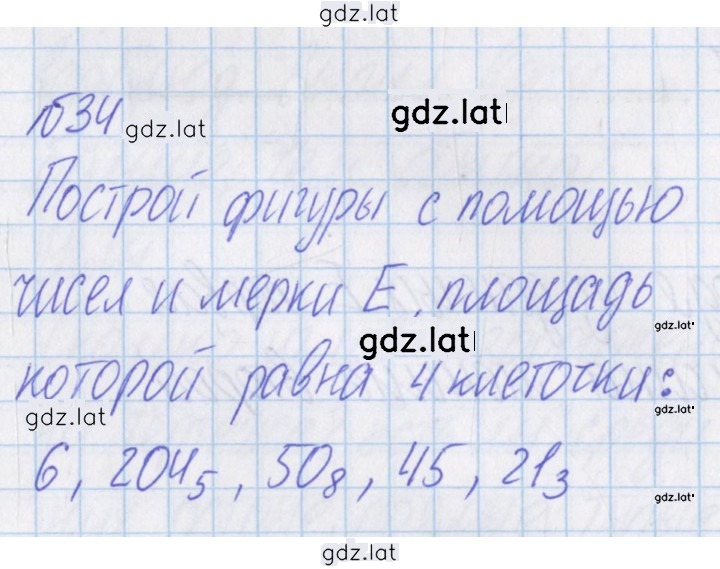 gdz.lat
№534 gdz.lat gdz.lat
Построй фигуры с помощью
чисел и мерки Е, площадь
gdz.lat gdz.lat
которой равна 4 клеточки:
gdz.lat gdz.lat
6, 204₅, 50₈, 45, 21₃
gdz.lat
gdz.lat